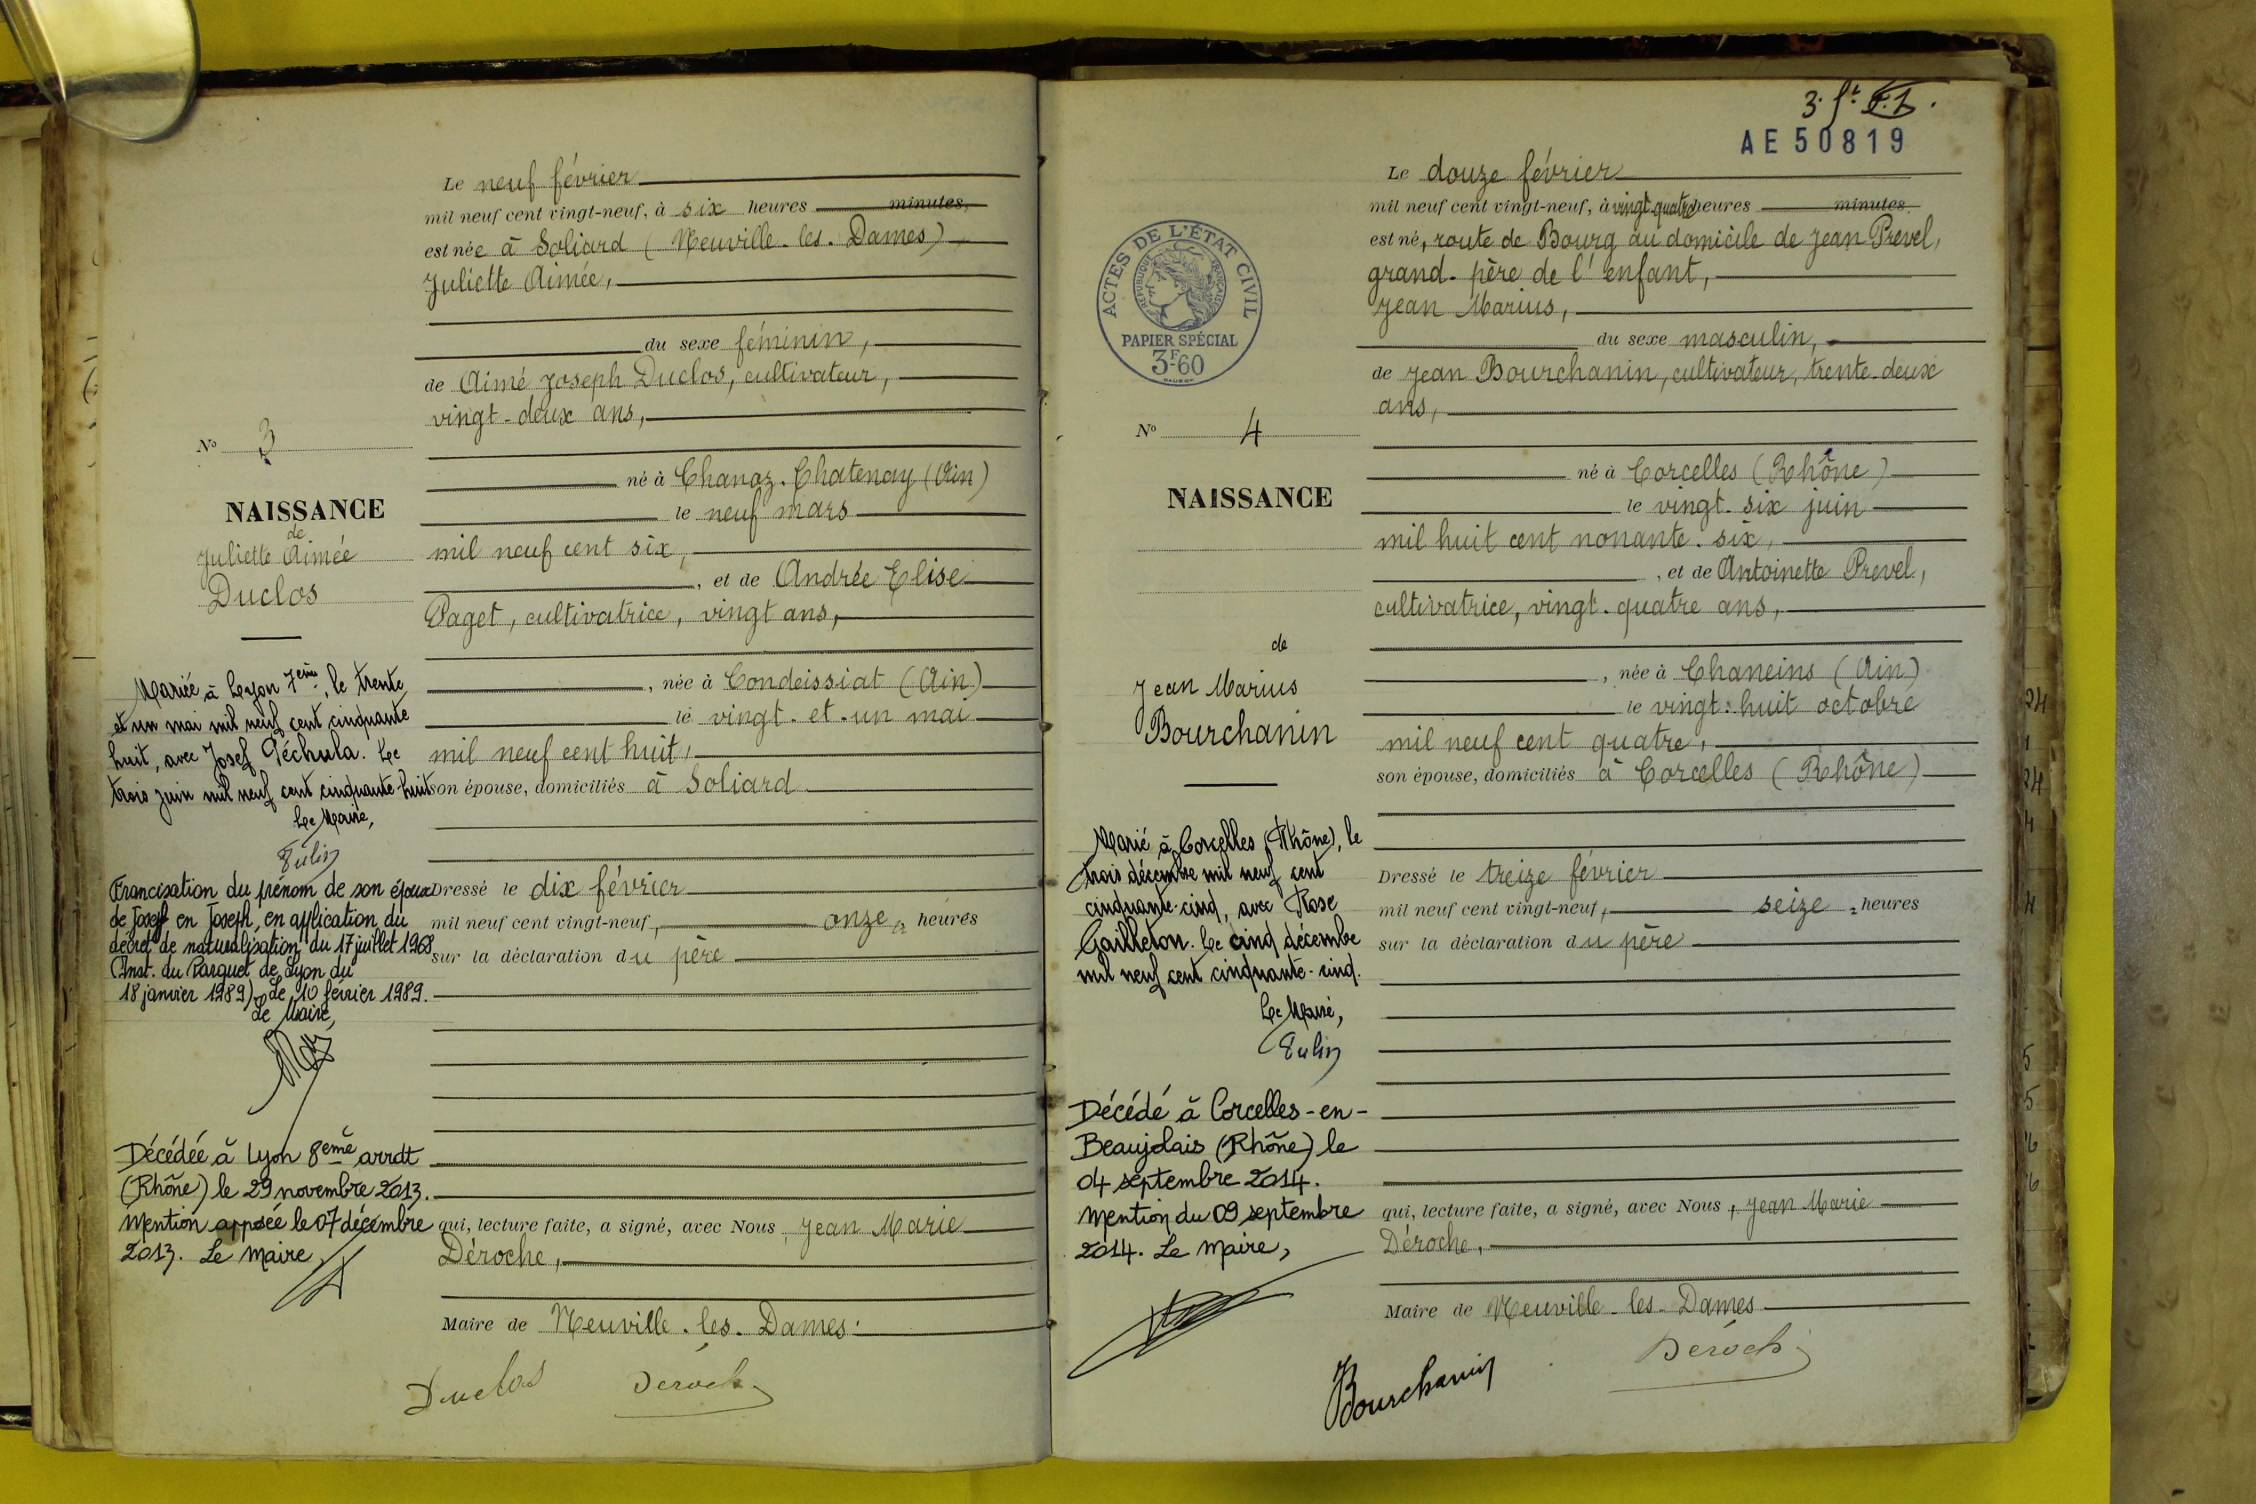 Le neuf février
mil neuf cent vingt-neuf, à six heures minutes,
est née à Soliard (Neuville-les-Dames),
Juliette Aimée,
du sexe féminin,
de Aimé Joseph Duclos, cultivateur,
vingt-deux ans,
né à Chanoz-Chatenay (Ain)
le neuf mars
mil neuf cent six,
, et de Andrée Elise
Paget, cultivatrice, vingt ans,
, née à Condeissiat (Ain)
le vingt-et-un mai
mil neuf cent huit,
son épouse, domiciliés à Soliard
Dressé le dix février
mil neuf cent vingt-neuf, onze heures
sur la déclaration du père
qui, lecture faite, a signé, avec Nous, Jean Marie
Déroche,
Maire de Neuville-les-Dames.
Duclos Déroche
No 3
NAISSANCE
de
Juliette Aimée
Duclos
Mariée à Lyon 7ème, le trente
et un mai mil neuf cent cinquante
huit, avec Josef Péchula. Le
trois juin mil neuf cent cinquante-huit
Le Maire,
Francisation du prénom de son époux
de Josef en Joseph, en application du
décret de naturalisation du 17 juillet 1968
(Inst. du Parquet de Lyon du
18 janvier 1989) Le 10 février 1989.
Le Maire,
Décédée à Lyon 8ème arrdt
(Rhône) le 29 novembre 2013.
Mention apposée le 07 décembre
2013. Le Maire,
3.
AE50819
Le douze février
mil neuf cent vingt-neuf, à vingt-quatre heures minutes
est né, route de Bourg au domicile de Jean Prevel,
grand-père de l'enfant,
Jean Marius,
du sexe masculin,
de Jean Bourchanin, cultivateur, trente-deux
ans,
né à Corcelles (Rhône)
le vingt-six juin
mil huit cent nonante-six,
, et de Antoinette Prevel,
cultivatrice, vingt-quatre ans,
, née à Chaneins (Ain)
le vingt-huit octobre
mil neuf cent quatre,
son épouse, domiciliés à Corcelles (Rhône)
Dressé le treize février
mil neuf cent vingt-neuf, seize heures
sur la déclaration du père
qui, lecture faite, a signé, avec Nous, Jean Marie
Déroche,
Maire de Neuville-les-Dames
Bourchanin Déroche
ACTES DE L'ÉTAT CIVIL
RÉPUBLIQUE FRANÇAISE
PAPIER SPÉCIAL
3F60
No 4
NAISSANCE
de
Jean Marius
Bourchanin
Marié à Corcelles (Rhône), le
trois décembre mil neuf cent
cinquante-cinq, avec Rose
Gailleton. Le cinq décembre
mil neuf cent cinquante-cinq.
Le Maire,
Décédé à Corcelles-en-
Beaujolais (Rhône) le
04 septembre 2014.
Mention du 09 septembre
2014. Le Maire,
24
1
24
4
4
5
5
6
6